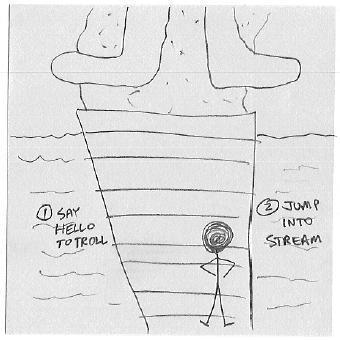 ① SAY
HELLO
TO TROLL
② JUMP
INTO
STREAM